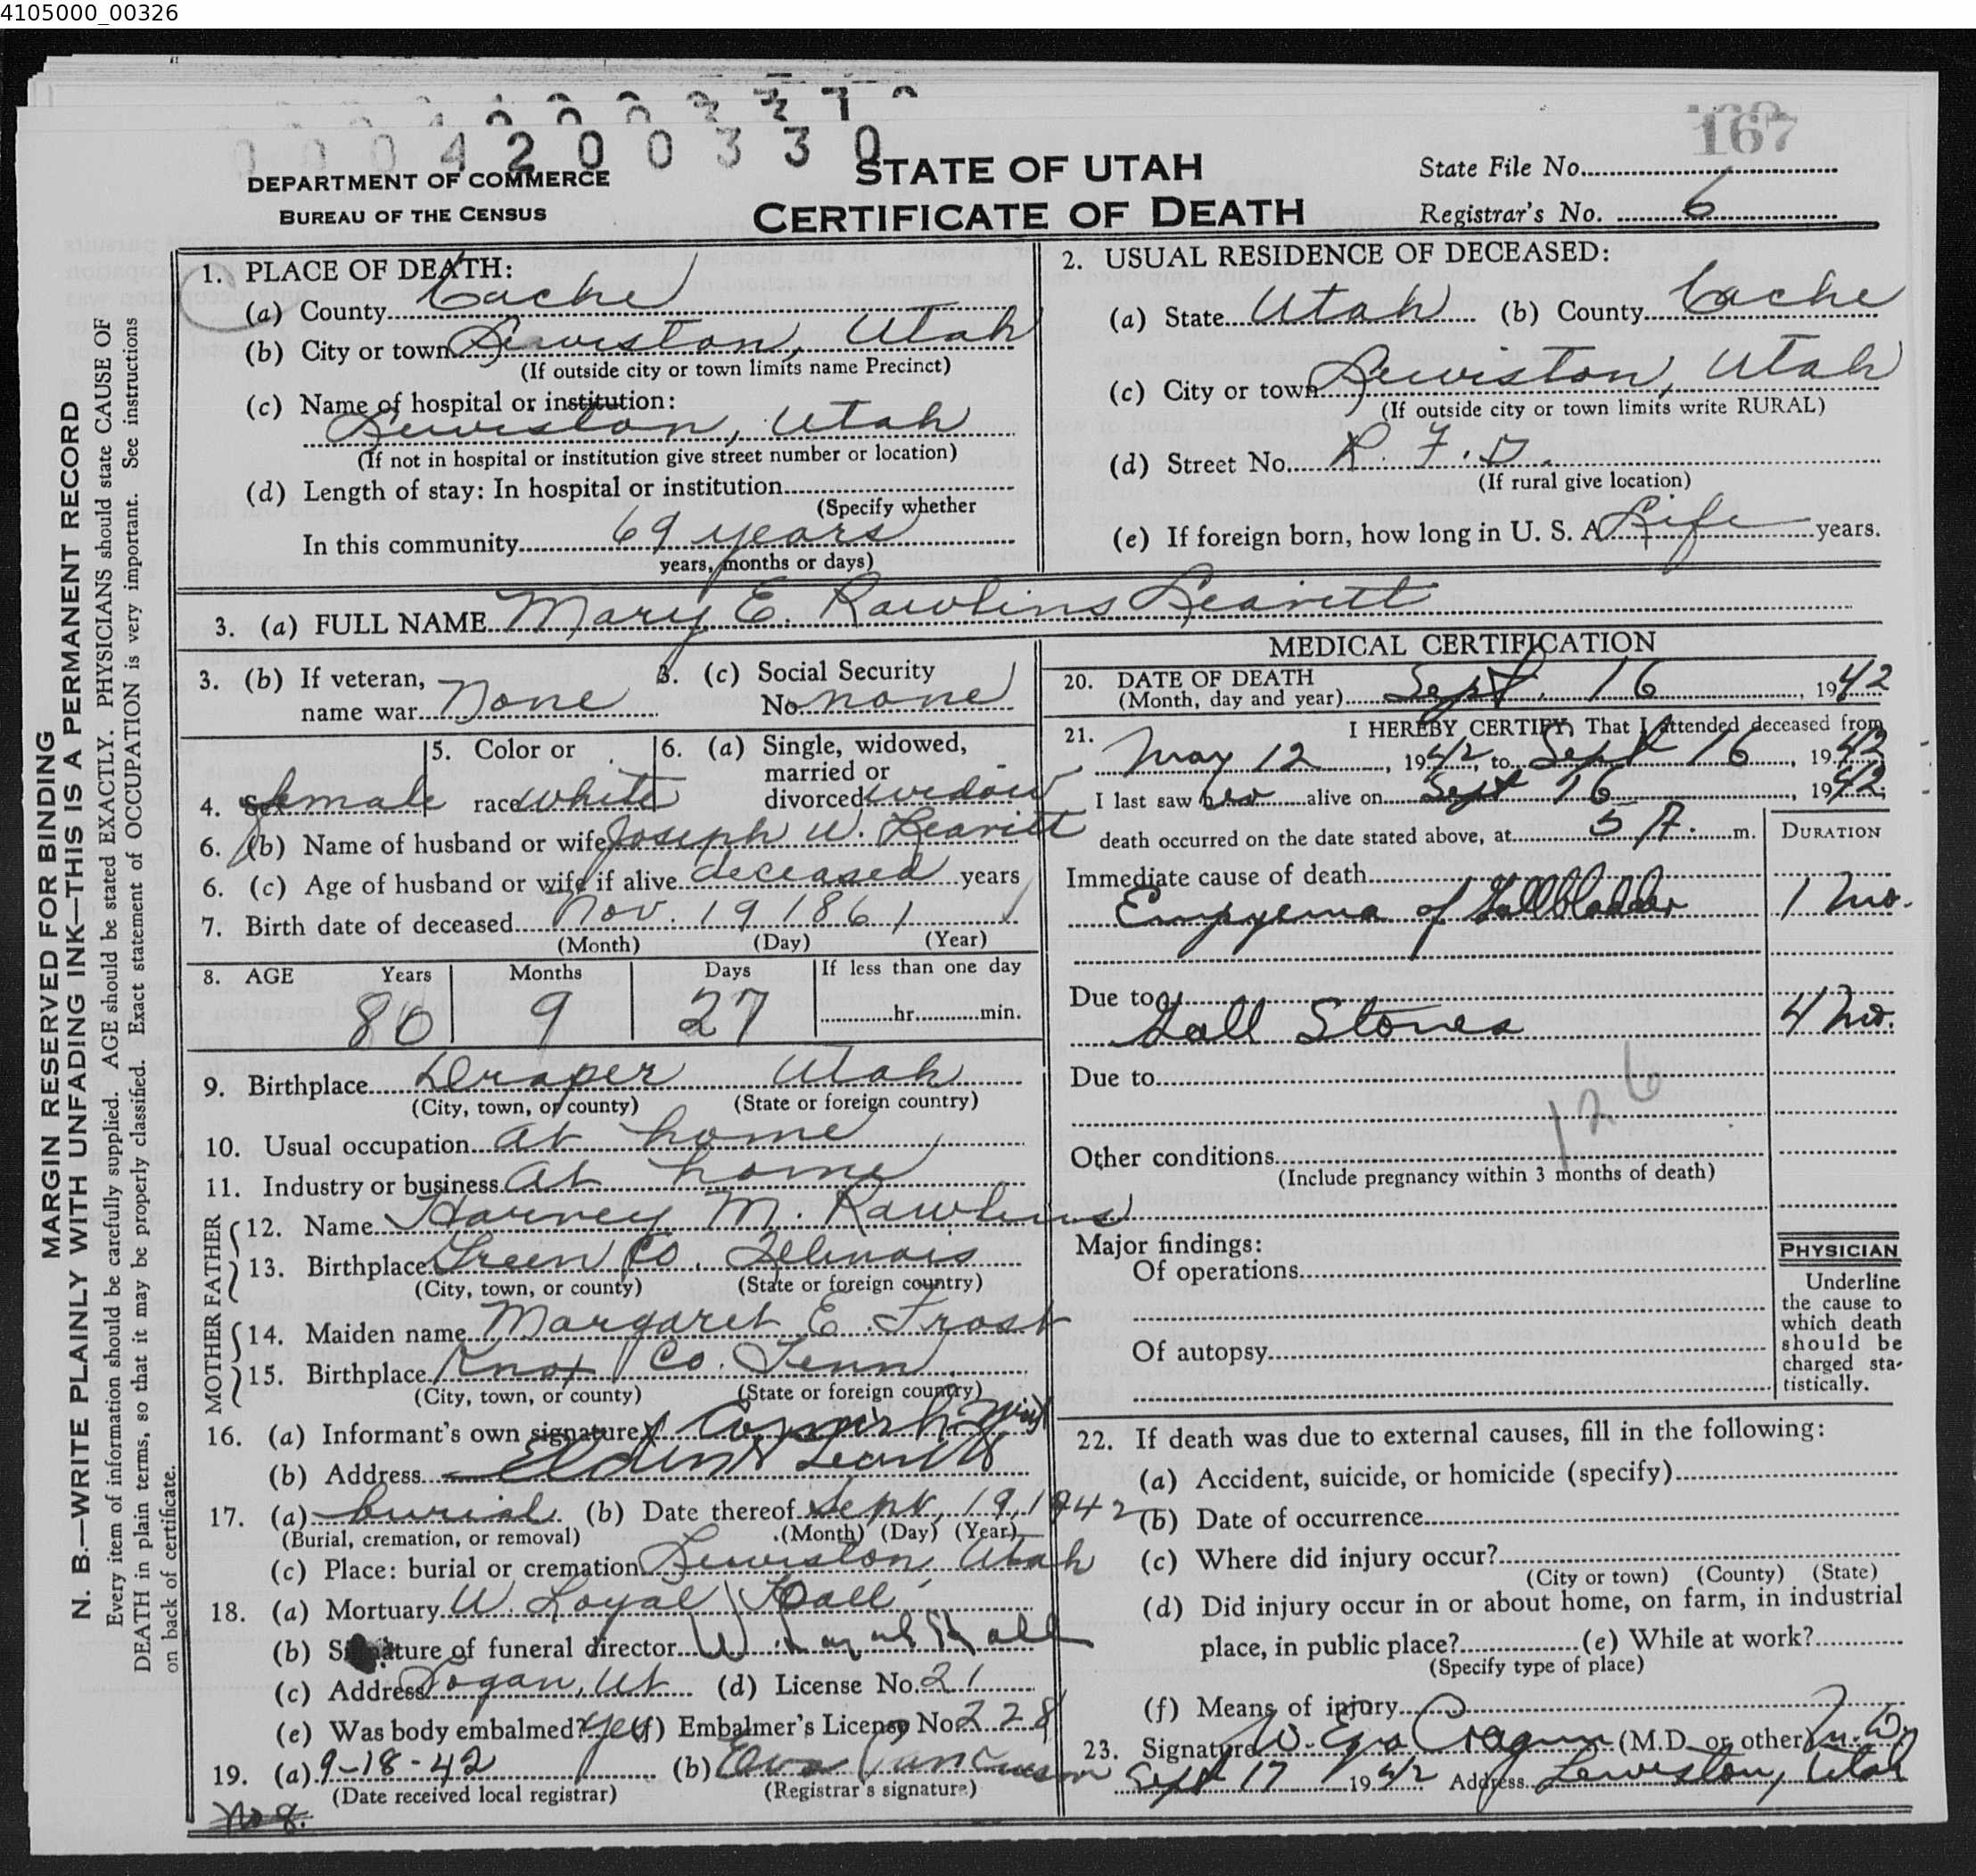 4105000_00326
0004200330
167
DEPARTMENT OF COMMERCE
BUREAU OF THE CENSUS
STATE OF UTAH
CERTIFICATE OF DEATH
State File No.
Registrar's No. 6
MARGIN RESERVED FOR BINDING
N. B.—WRITE PLAINLY WITH UNFADING INK—THIS IS A PERMANENT RECORD
Every item of information should be carefully supplied. AGE should be stated EXACTLY. PHYSICIANS should state CAUSE OF
DEATH in plain terms, so that it may be properly classified. Exact statement of OCCUPATION is very important. See instructions
on back of certificate.
1. PLACE OF DEATH:
(a) County Cache
(b) City or town Lewiston, Utah
(If outside city or town limits name Precinct)
(c) Name of hospital or institution:
Lewiston, Utah
(If not in hospital or institution give street number or location)
(d) Length of stay: In hospital or institution
(Specify whether
In this community 69 years
years, months or days)
2. USUAL RESIDENCE OF DECEASED:
(a) State Utah (b) County Cache
(c) City or town Lewiston, Utah
(If outside city or town limits write RURAL)
(d) Street No. R. F. D.
(If rural give location)
(e) If foreign born, how long in U. S. A. Life years.
3. (a) FULL NAME Mary E. Rawlins Leavitt
3. (b) If veteran,
name war None
3. (c) Social Security
No. none
4. Sex female
5. Color or
race white
6. (a) Single, widowed,
married or
divorced widow
6. (b) Name of husband or wife Joseph W. Leavitt
6. (c) Age of husband or wife if alive deceased years
7. Birth date of deceased Nov. 19 1861
(Month) (Day) (Year)
8. AGE Years Months Days If less than one day
80 9 27 hr. min.
9. Birthplace Draper Utah
(City, town, or county) (State or foreign country)
10. Usual occupation at home
11. Industry or business at home
FATHER
12. Name Harvey M. Rawlins
13. Birthplace Green Co. Illinois
(City, town, or county) (State or foreign country)
MOTHER
14. Maiden name Margaret E. Frost
15. Birthplace Knox Co. Tenn
(City, town, or county) (State or foreign country)
16. (a) Informant's own signature
(b) Address
17. (a) burial (b) Date thereof Sept. 19, 1942
(Burial, cremation, or removal) (Month) (Day) (Year)
(c) Place: burial or cremation Lewiston, Utah
18. (a) Mortuary W. Loyal Hall
(b) Signature of funeral director W. Loyal Hall
(c) Address Logan, Ut (d) License No. 21
(e) Was body embalmed? yes (f) Embalmer's License No. 228
19. (a) 9-18-42 (b)
(Date received local registrar) (Registrar's signature)
No 8.
MEDICAL CERTIFICATION
20. DATE OF DEATH
(Month, day and year) Sept. 16, 1942
21. I HEREBY CERTIFY, That I attended deceased from
May 12, 1942, to Sept 16, 1942
I last saw her alive on Sept 16, 1942;
death occurred on the date stated above, at 5 A. m.
DURATION
Immediate cause of death
Empyema of Gallbladder 1 mo.
Due to
Gall Stones 4 mo.
Due to
126
Other conditions
(Include pregnancy within 3 months of death)
Major findings:
Of operations
Of autopsy
PHYSICIAN
Underline
the cause to
which death
should be
charged sta-
tistically.
22. If death was due to external causes, fill in the following:
(a) Accident, suicide, or homicide (specify)
(b) Date of occurrence
(c) Where did injury occur?
(City or town) (County) (State)
(d) Did injury occur in or about home, on farm, in industrial
place, in public place? (e) While at work?
(Specify type of place)
(f) Means of injury
23. Signature W. Ezra Cragun (M.D. or other) M.D.
Sept 17 1942 Address Lewiston, Utah